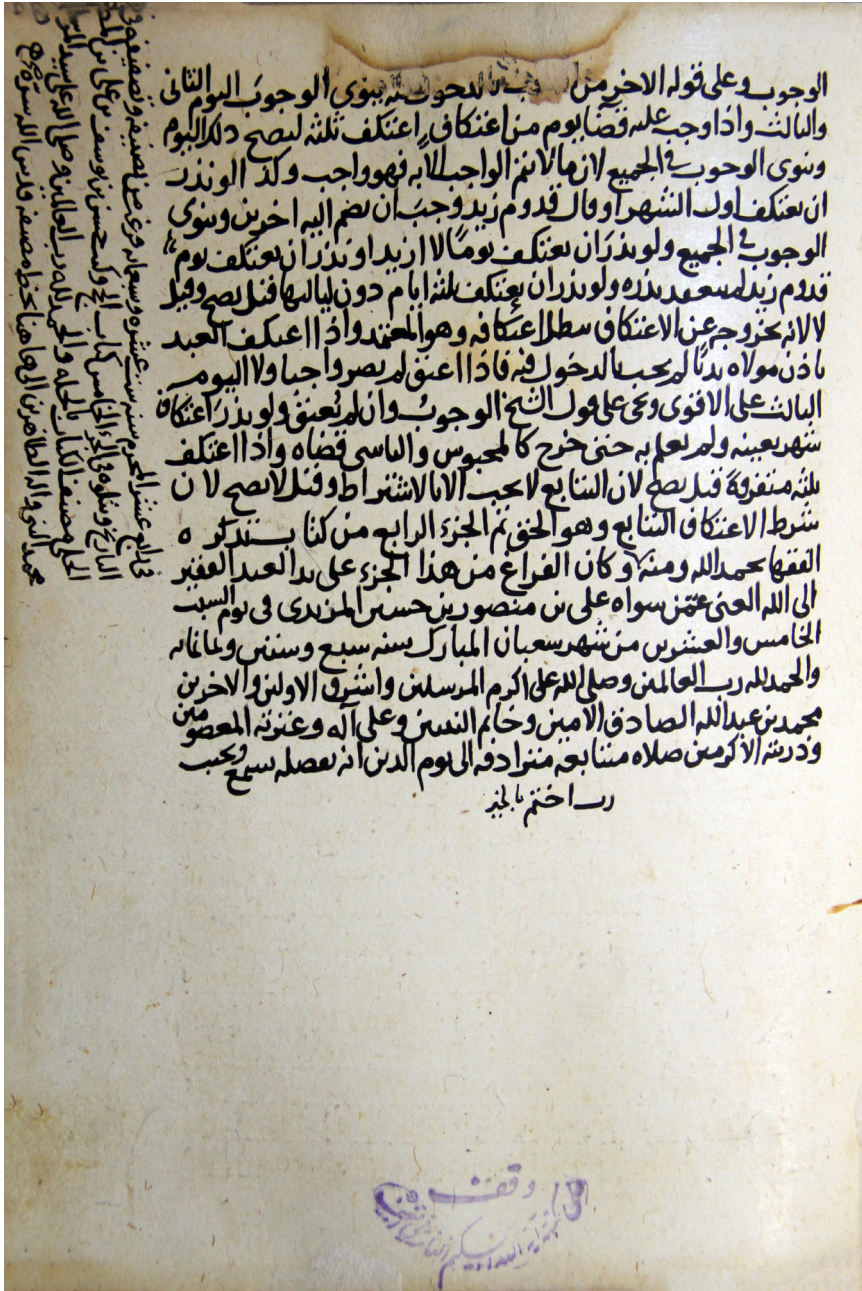 الوجوب وعلى قوله الاخر من بالدخول فيه ينوى الوجوب اليوم الثانى
والثالث واذا وجب عليه قضا يوم من اعتكاف اعتكف ثلثه ليصح ذلك اليوم
وينوى الوجوب فى الجميع لان ما لا يتم الواجب الا به فهو واجب وكذا لو نذر
ان يعتكف اول الشهر او قال قدوم زيد وجب ان يضم اليه اخرين وينوى
الوجوب فى الجميع ولو نذر ان يعتكف يوما لا ازيد او نذر ان يعتكف يوم
قدوم زيد لم ينعقد نذره ولو نذر ان يعتكف ثلثه ايام دون لياليها قيل يصح وقيل
لا لانه بخروجه عن الاعتكاف يبطل اعتكافه وهو المعتمد واذا اعتكف العبد
باذن مولاه ندبا لم يجب بالدخول فيه فاذا اعتق لم يصر واجبا ولا اليوم
الثالث على الاقوى ويجى على قول الشيخ الوجوب وان لم يعتق ولو نذر اعتكاف
شهر بعينه ولم يعلم به حتى خرج كالمحبوس والناسى قضاه واذا اعتكف
ثلثه متفرقة قيل يصح لان التتابع لا يجب الا بالاشتراط وقيل لا يصح لان
شرط الاعتكاف التتابع وهو الحق تم الجزء الرابع من كتاب تذكره
الفقها بحمد الله ومنه وكان الفراغ من هذا الجزء على يد العبد الفقير
الى الله الغنى عمّن سواه على بن منصور بن حسين المزيدى فى يوم السبت
الخامس والعشرين من شهر شعبان المبارك سنه سبع وستين وثمانمائه
والحمد لله رب العالمين وصلى الله على اكرم المرسلين واشرف الاولين والاخرين
محمد بن عبد الله الصادق الامين وخاتم النبيين وعلى آله وعترته المعصومين
وذريته الاكرمين صلاه متتابعه مترادفه الى يوم الدين انه بفضله سميع ويجيب
رب اختم بالخير
فرغ من تصنيفه وتصفيفه
فى رابع عشر المحرم سنه ست عشره وسبعمائه
التاريخ ويتلوه فى الجزء الخامس كتاب الحج وكتب حسن بن يوسف بن على بن المطهر
الحلى مصنف الكتاب بالحله والحمد لله رب العالمين وصلى الله على سيد المرسلين
محمد النبى واله الطاهرين الى هاهنا بخط مصنفه قدس الله سره
وقف